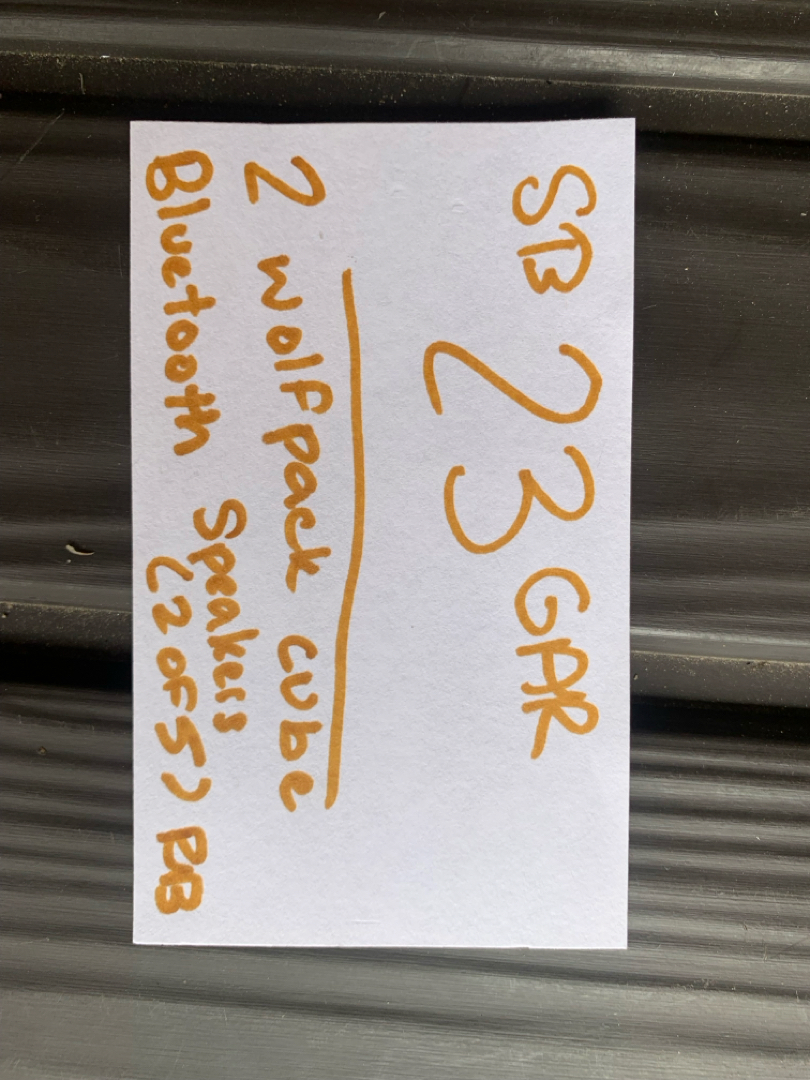 SB 23 GAR
2 wolfpack cube
Bluetooth Speakers
(2 OF 5) BB